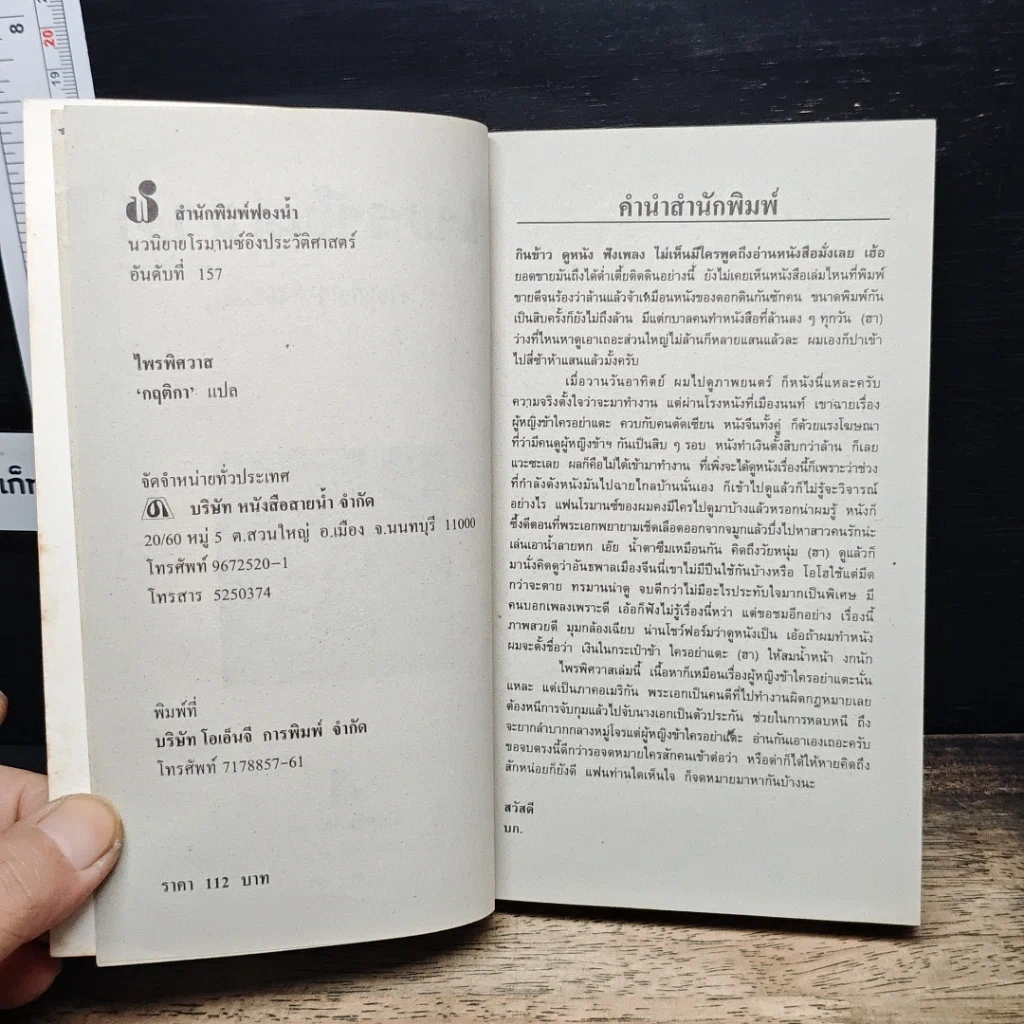 8
20
19
เก็
สำนักพิมพ์ฟองน้ำ
นวนิยายโรมานซ์อิงประวัติศาสตร์
อันดับที่ 157
ไพรพิศวาส
‘กฤติกา’ แปล
จัดจำหน่ายทั่วประเทศ
บริษัท หนังสือสายน้ำ จำกัด
20/60 หมู่ 5 ต.สวนใหญ่ อ.เมือง จ.นนทบุรี 11000
โทรศัพท์ 9672520-1
โทรสาร 5250374
พิมพ์ที่
บริษัท โอเอ็นจี การพิมพ์ จำกัด
โทรศัพท์ 7178857-61
ราคา 112 บาท
คำนำสำนักพิมพ์
กินข้าว ดูหนัง ฟังเพลง ไม่เห็นมีใครพูดถึงอ่านหนังสือมั่งเลย เฮ้อ
ยอดขายมันถึงได้ต่ำเตี้ยติดดินอย่างนี้ ยังไม่เคยเห็นหนังสือเล่มไหนที่พิมพ์
ขายดีจนร้องว่าล้านแล้วจ้าเหมือนหนังของดอกดินกันซักคน ขนาดพิมพ์กัน
เป็นสิบครั้งก็ยังไม่ถึงล้าน มีแต่กบาลคนทำหนังสือที่ล้านลง ๆ ทุกวัน (ฮา)
ว่างที่ไหนหาดูเอาเถอะส่วนใหญ่ไม่ล้านก็หลายแสนแล้วละ ผมเองก็ปาเข้า
ไปสี่ซ้าห้าแสนแล้วมั้งครับ
เมื่อวานวันอาทิตย์ ผมไปดูภาพยนตร์ ก็หนังนี่แหละครับ
ความจริงตั้งใจว่าจะมาทำงาน แต่ผ่านโรงหนังที่เมืองนนท์ เขาฉายเรื่อง
ผู้หญิงข้าใครอย่าแตะ ควบกับคนตัดเซียน หนังจีนทั้งคู่ ก็ด้วยแรงโฆษณา
ที่ว่ามีคนดูผู้หญิงข้าฯ กันเป็นสิบ ๆ รอบ หนังทำเงินตั้งสิบกว่าล้าน ก็เลย
แวะซะเลย ผลก็คือไม่ได้เข้ามาทำงาน ที่เพิ่งจะได้ดูหนังเรื่องนี้ก็เพราะว่าช่วง
ที่กำลังดังหนังมันไปฉายไกลบ้านนั่นเอง ก็เข้าไปดูแล้วก็ไม่รู้จะวิจารณ์
อย่างไร แฟนโรมานซ์ของผมคงมีใครไปดูมาบ้างแล้วหรอกน่าผมรู้ หนังก็
ซึ้งดีตอนที่พระเอกพยายามเช็ดเลือดออกจากจมูกแล้วบึ่งไปหาสาวคนรักน่ะ
เล่นเอาน้ำลายหก เอ๊ย น้ำตาซึมเหมือนกัน คิดถึงวัยหนุ่ม (ฮา) ดูแล้วก็
มานั่งคิดดูว่าอันธพาลเมืองจีนนี่เขาไม่มีปืนใช้กันบ้างหรือ โอโฮใช้แต่มีด
กว่าจะตาย ทรมานน่าดู จบดีกว่าไม่มีอะไรประทับใจมากเป็นพิเศษ มี
คนบอกเพลงเพราะดี เอ้อก็ฟังไม่รู้เรื่องนี่หว่า แต่ขอชมอีกอย่าง เรื่องนี้
ภาพสวยดี มุมกล้องเฉียบ น่านโชว์ฟอร์มว่าดูหนังเป็น เอ้อถ้าผมทำหนัง
ผมจะตั้งชื่อว่า เงินในกระเป๋าข้า ใครอย่าแตะ (ฮา) ให้สมน้ำหน้า งกนัก
ไพรพิศวาสเล่มนี้ เนื้อหาก็เหมือนเรื่องผู้หญิงข้าใครอย่าแตะนั่น
แหละ แต่เป็นภาคอเมริกัน พระเอกเป็นคนดีที่ไปทำงานผิดกฎหมายเลย
ต้องหนีการจับกุมแล้วไปจับนางเอกเป็นตัวประกัน ช่วยในการหลบหนี ถึง
จะยากลำบากกลางหมู่โจรแต่ผู้หญิงข้าใครอย่าแตะ อ่านกันเอาเองเถอะครับ
ขอจบตรงนี้ดีกว่ารอจดหมายใครสักคนเข้าต่อว่า หรือด่าก็ได้ให้หายคิดถึง
สักหน่อยก็ยังดี แฟนท่านใดเห็นใจ ก็จดหมายมาหากันบ้างนะ
สวัสดี
บก.